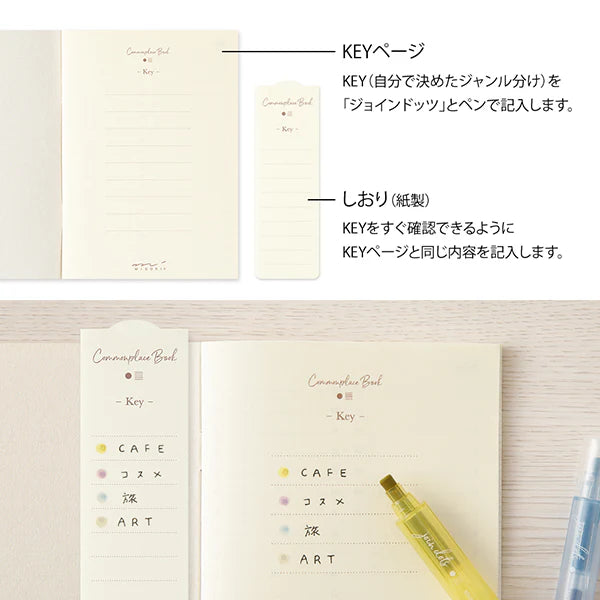 Commonplace Book
- Key -
MIDORI
KEYページ
KEY（自分で決めたジャンル分け）を
「ジョインドッツ」とペンで記入します。
Commonplace Book
- Key -
しおり（紙製）
KEYをすぐ確認できるように
KEYページと同じ内容を記入します。
Commonplace Book
- Key -
CAFE
コスメ
旅
ART
Commonplace Book
- Key -
CAFE
コスメ
旅
ART
join dots